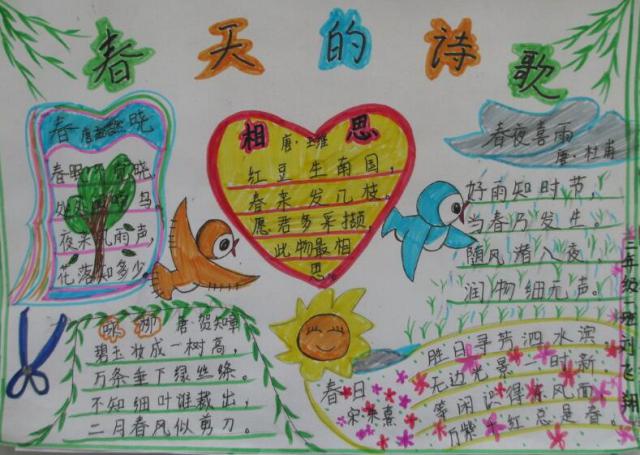 春天的诗歌
春晓
唐 孟浩然
春眠不觉晓，
处处闻啼鸟。
夜来风雨声，
花落知多少。
相思
唐·王维
红豆生南国，
春来发几枝。
愿君多采撷，
此物最相
思。
春夜喜雨
唐·杜甫
好雨知时节，
当春乃发生。
随风潜入夜，
润物细无声。
咏柳 唐 贺知章
碧玉妆成一树高，
万条垂下绿丝绦。
不知细叶谁裁出，
二月春风似剪刀。
春日
宋 朱熹
胜日寻芳泗水滨
无边光景一时新
等闲识得东风面
万紫千红总是春。
二年级一班刘飞翔